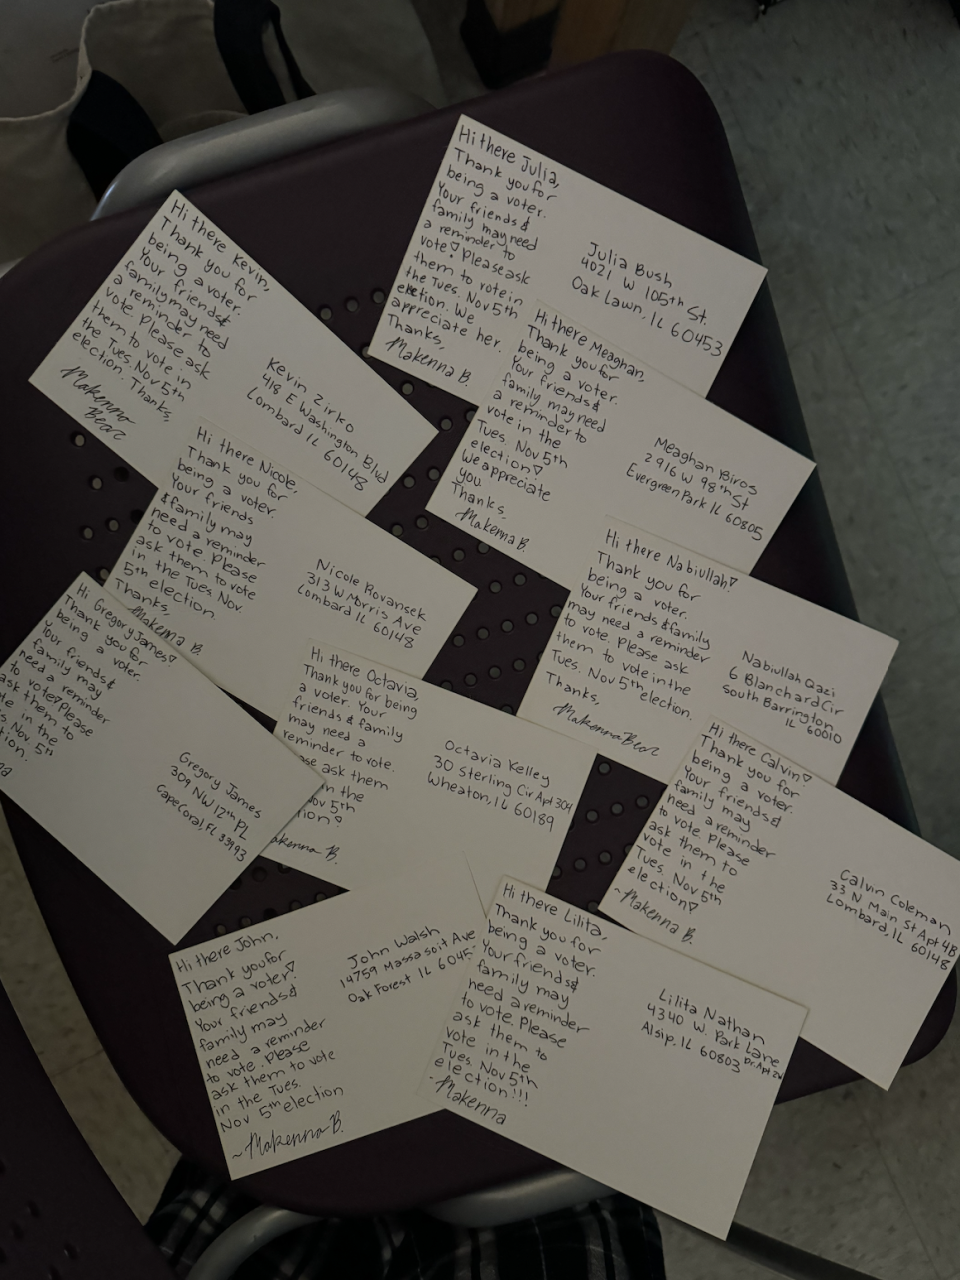 Hi there Julia,
Thank you for
being a voter.
Your friends &
family may need
a reminder to
vote! Please ask
them to vote in
the Tues. Nov 5th
election. We
appreciate her.
Thanks,
Makenna B.
Julia Bush
4021 W 105th St.
Oak Lawn, IL 60453
Hi there Kevin,
Thank you for
being a voter.
Your friends &
family may need
a reminder to
vote. Please ask
them to vote in
the Tues. Nov 5th
election. Thanks,
Makenna
Bear
Kevin Zirko
418 E Washington Blvd
Lombard IL 60148
Hi there Meaghan,
Thank you for
being a voter.
Your friends &
family may need
a reminder to
vote in the
Tues. Nov 5th
election!
We appreciate
you.
Thanks,
Makenna B.
Meaghan Biros
2916 W 98th St
Evergreen Park IL 60805
Hi there Nicole,
Thank you for
being a voter.
Your friends
& family may
need a reminder
to vote. Please
ask them to vote
in the Tues. Nov.
5th election.
Thanks,
Makenna B.
Nicole Rovansek
313 W Morris Ave
Lombard IL 60148
Hi there Nabiullah!
Thank you for
being a voter.
Your friends & family
may need a reminder
to vote. Please ask
them to vote in the
Tues. Nov 5th election.
Thanks,
Makenna Bear
Nabiullah Qazi
6 Blanchard Cir
South Barrington,
IL 60010
Hi Gregory James!
Thank you for
being a voter.
Your friends &
family may
need a reminder
to vote! Please
ask them to
te in the
s. Nov 5th
tion.
na
Gregory James
309 NW 12th PL
Cape Coral, FL 33993
Hi there Octavia,
Thank you for being
a voter. Your
friends & family
may need a
reminder to vote.
se ask them
in the
ov 5th
ion!
akenna B.
Octavia Kelley
30 Sterling Cir Apt 304
Wheaton, IL 60189
Hi there Calvin!
Thank you for
being a voter.
Your friends &
family may
need a reminder
to vote Please
ask them to
vote in the
Tues. Nov 5th
election!
~Makenna B.
Calvin Coleman
33 N Main St Apt 4B
Lombard, IL 60148
Hi there John,
Thank you for
being a voter!
Your friends &
family may
need a reminder
to vote. Please
ask them to vote
in the Tues.
Nov 5th election
~Makenna B.
John Walsh
14759 Massasoit Ave
Oak Forest IL 6045
Hi there Lilita,
Thank you for
being a voter.
Your friends &
family may
need a reminder
to vote. Please
ask them to
vote in the
Tues. Nov 5th
election!!!
~Makenna
Lilita Nathan
4340 W. Park Lane
Dr. Apt 2W
Alsip, IL 60803